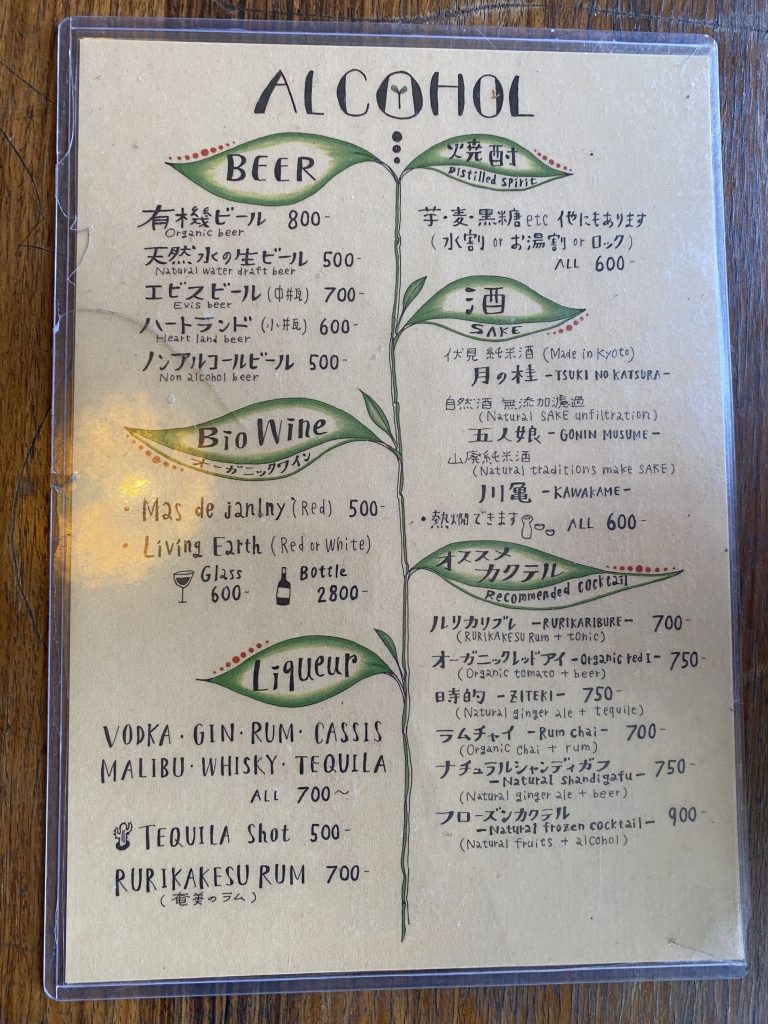 ALCOHOL
BEER
有機ビール 800-
Organic beer
天然水の生ビール 500-
Natural water draft beer
エビスビール(中瓶) 700-
Evis beer
ハートランド(小瓶) 600-
Heart land beer
ノンアルコールビール 500-
Non alcohol beer
Bio Wine
オーガニックワイン
・Mas de janlny (Red) 500-
・Living Earth (Red or White)
Glass 600-
Bottle 2800-
Liqueur
VODKA・GIN・RUM・CASSIS
MALIBU・WHISKY・TEQUILA
ALL 700～
TEQUILA Shot 500-
RURIKAKESU RUM 700-
(奄美のラム)
焼酎
Distilled spirit
芋・麦・黒糖 etc 他にもあります
(水割 or お湯割 or ロック)
ALL 600-
酒
SAKE
伏見 純米酒 (Made in Kyoto)
月の桂 -TSUKI NO KATSURA-
自然酒 無添加濾過
(Natural SAKE unfiltration)
五人娘 -GONIN MUSUME-
山廃純米酒
(Natural traditions make SAKE)
川亀 -KAWAKAME-
・熱燗できます ALL 600-
オススメ
カクテル
Recommended cocktail
ルリカリブレ -RURIKARIBURE- 700-
(RURIKAKESU Rum + tonic)
オーガニックレッドアイ -Organic red I- 750-
(Organic tomato + beer)
時的 -ZITEKI- 750-
(Natural ginger ale + tequile)
ラムチャイ -Rum chai- 700-
(Organic chai + rum)
ナチュラルシャンディガフ
-Natural shandigafu- 750-
(Natural ginger ale + beer)
フローズンカクテル
-Natural frozen cocktail- 900-
(Natural fruits + alcohol)